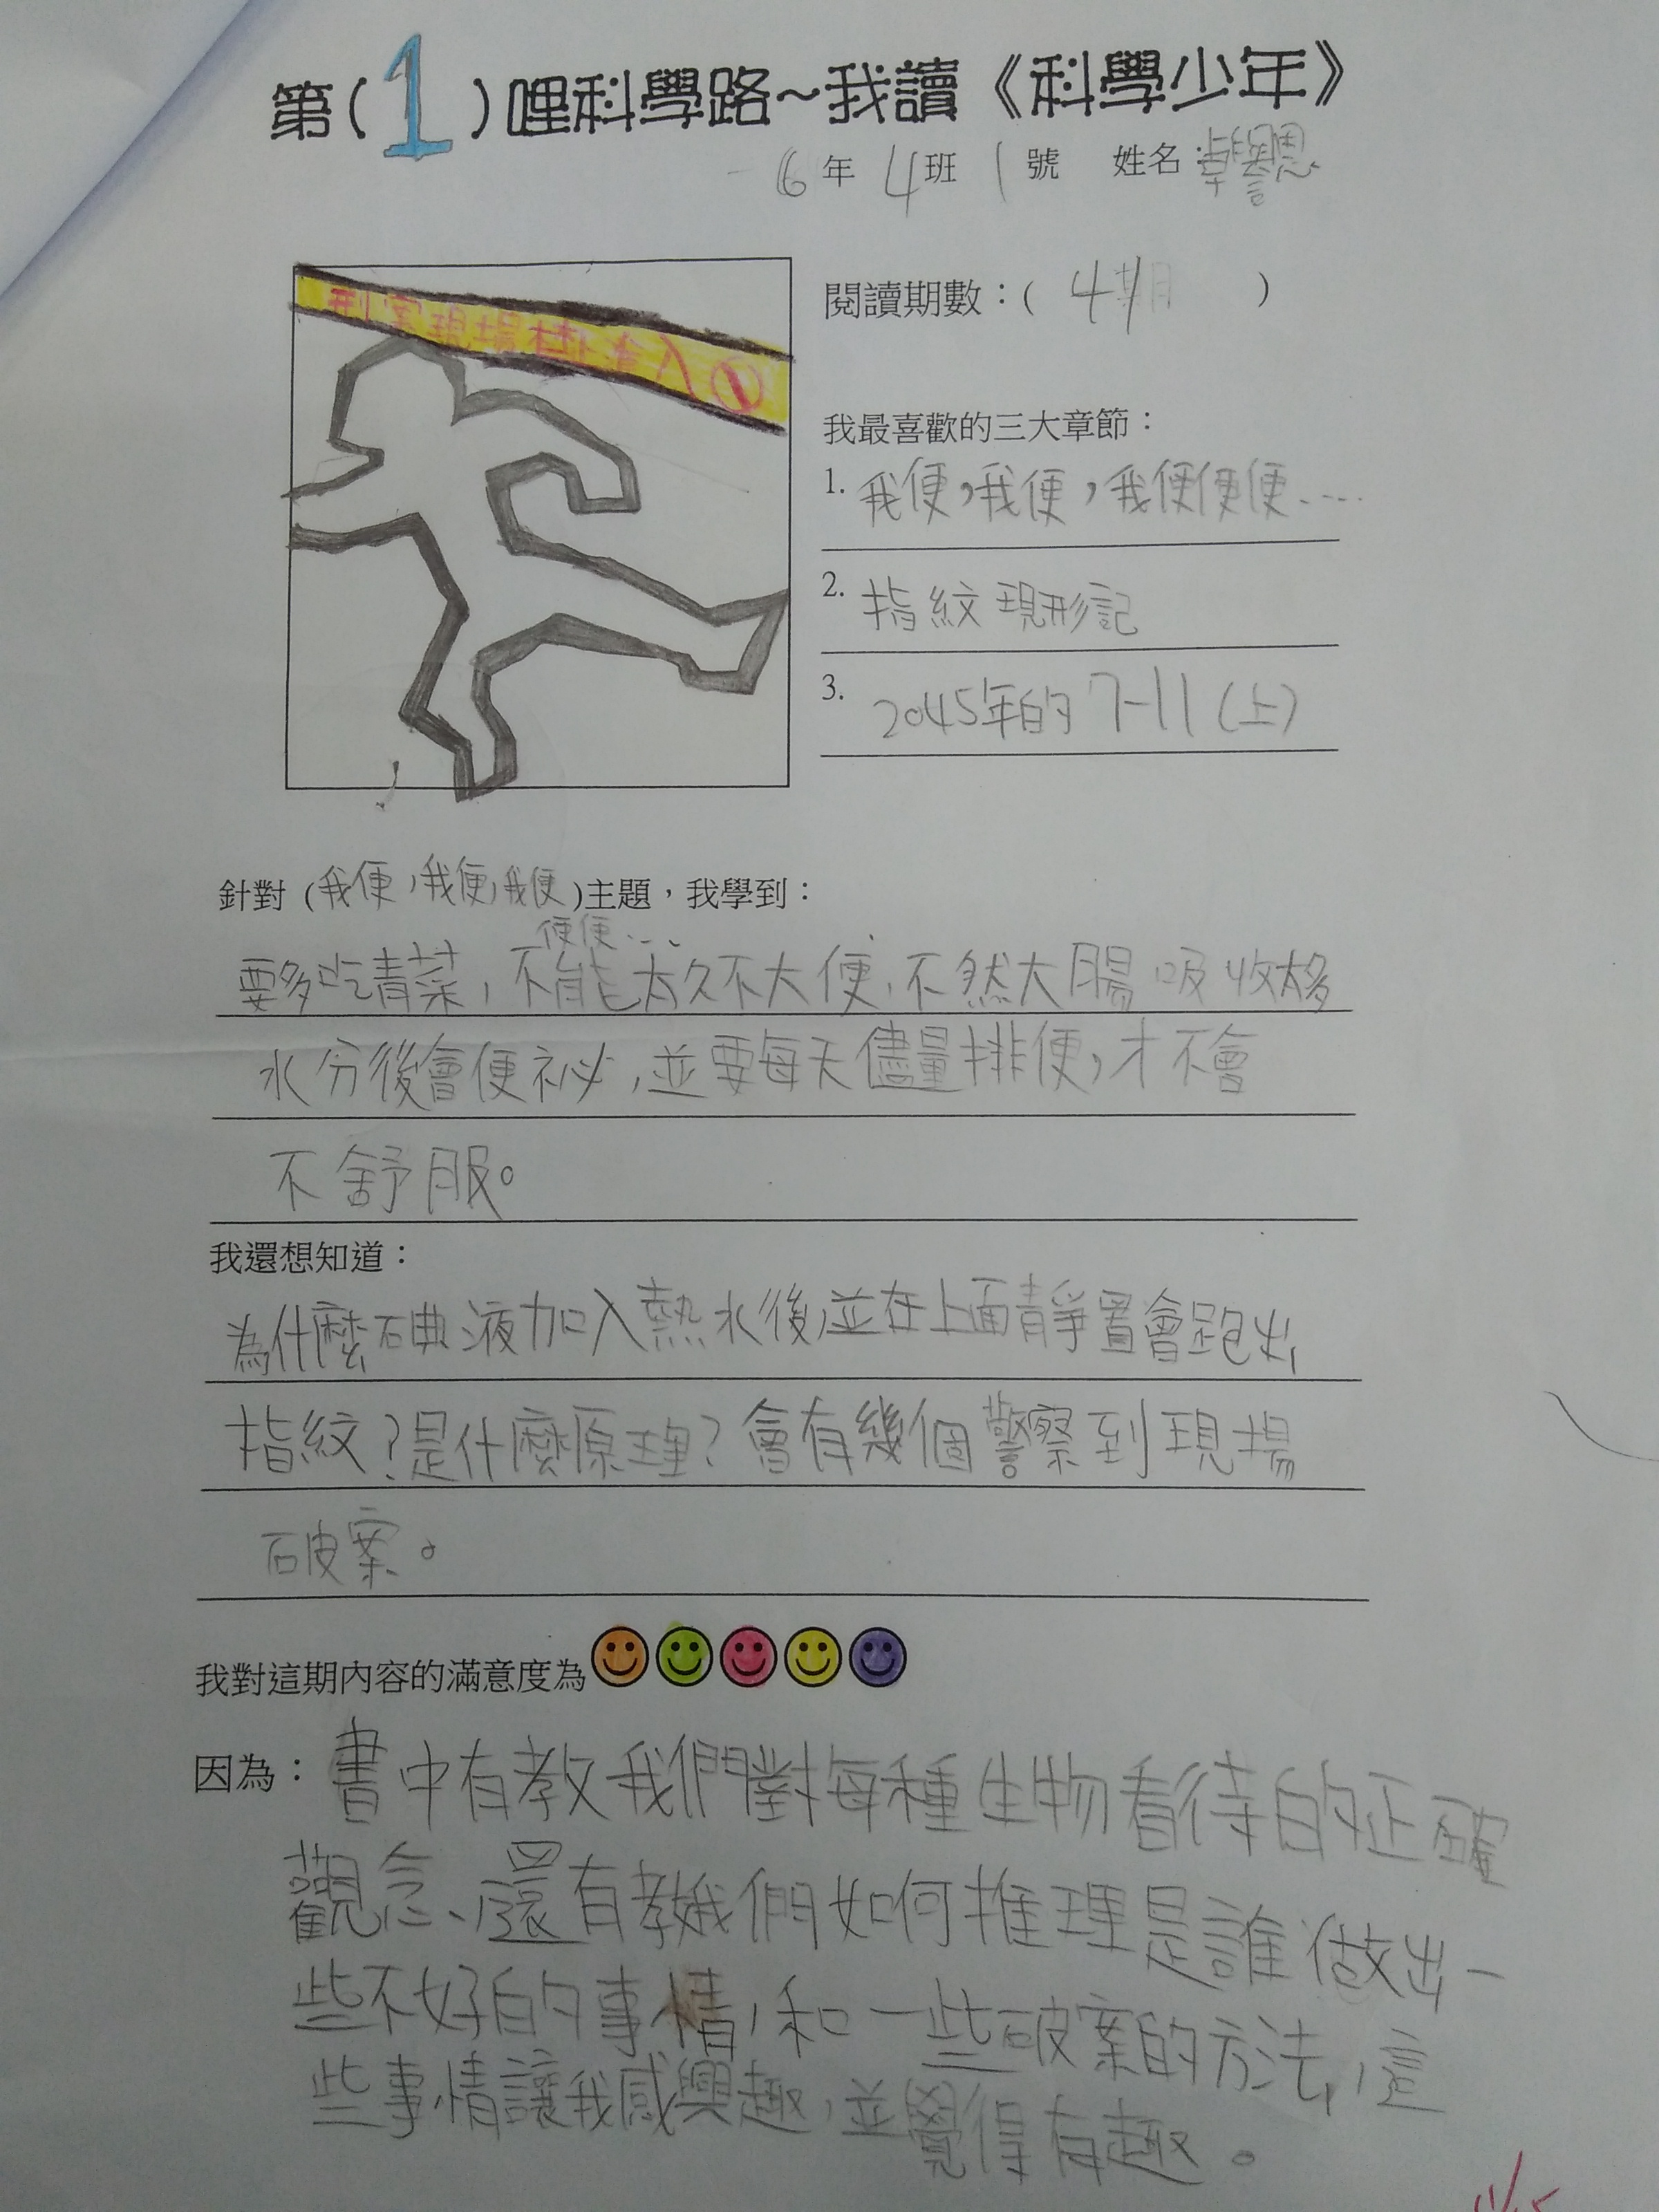 第(1)哩科學路~我讀《科學少年》
6年4班1號 姓名:
刑案現場禁入
閱讀期數:(4期)
我最喜歡的三大章節:
1. 我便,我便,我便便便....
2. 指紋現形記
3. 2045年的7-11(上)
針對(我便,我便,我便便便...)主題,我學到:
要多吃青菜,不能太久不大便,不然大腸吸收太多
水分後會便祕,並要每天儘量排便,才不會
不舒服。
我還想知道:
為什麼碘液加入熱水後,並在上面靜置會跑出
指紋?是什麼原理?會有幾個警察到現場
破案。
我對這期內容的滿意度為
因為:書中有教我們對每種生物看待的正確
觀念、還有教我們如何推理是誰做出一
些不好的事情,和一些破案的方法,這
些事情讓我感興趣,並覺得有趣。